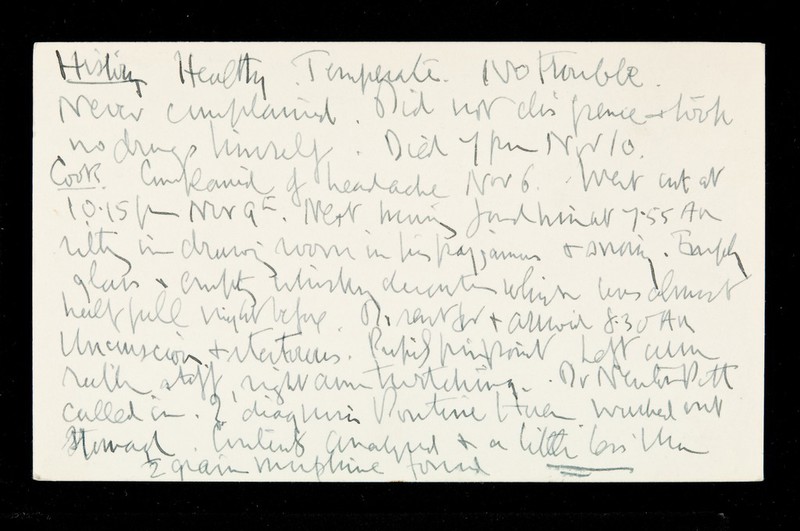 History Healthy. Temperate. No trouble.
Never complained. Did not dispense + took
no drugs himself. Died 7 pm Nov 10.
Cook. Complained of headache Nov 6. Went out at
10.15 pm Nov 9th. Next morning found him at 7.55 AM
sitting in drawing room in his pajamas + snoring. Empty
glass + empty whisky decanter which was almost
half full night before. Dr sent for + arrived 8.30 AM
Unconscious + stertorous. Pupils pinpoint Left arm
rather stiff, right arm twitching. Dr
called in. ? diagnosis Pontine Haem washed out
Stomach. Contents analysed + a little less than
½ grain morphine found